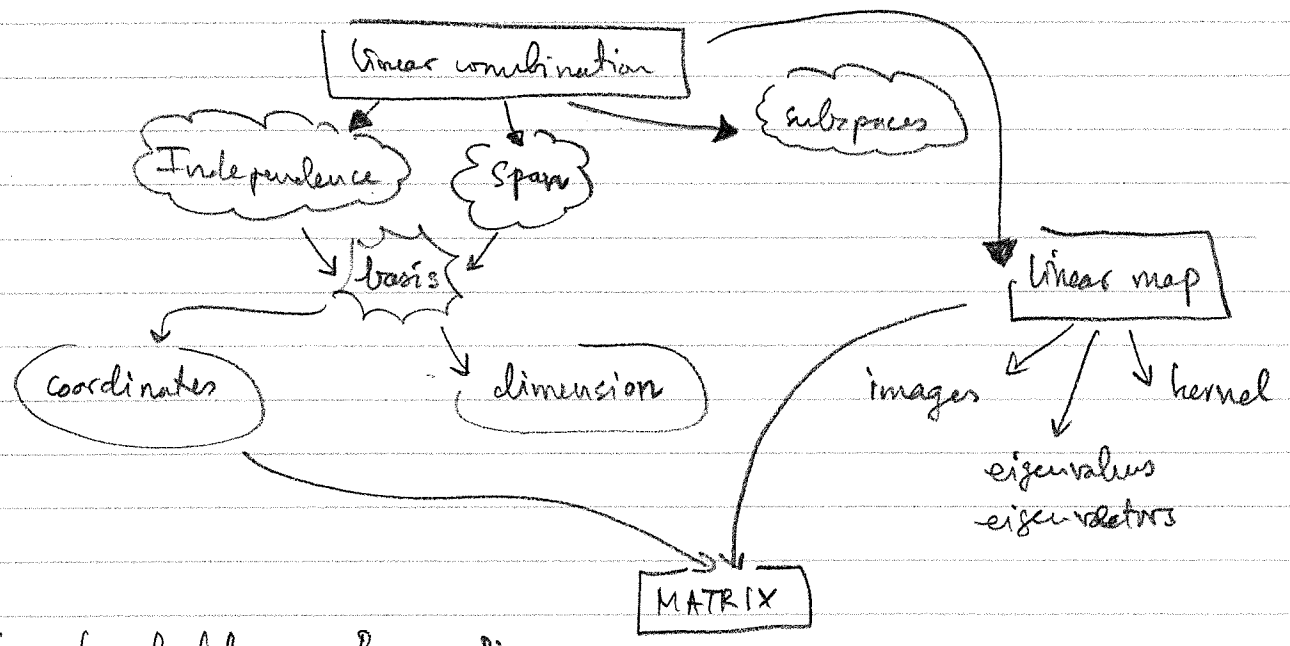 linear combination
subspaces
Independence
Span
basis
linear map
coordinates
dimension
images
kernel
eigenvalues
eigenvectors
MATRIX